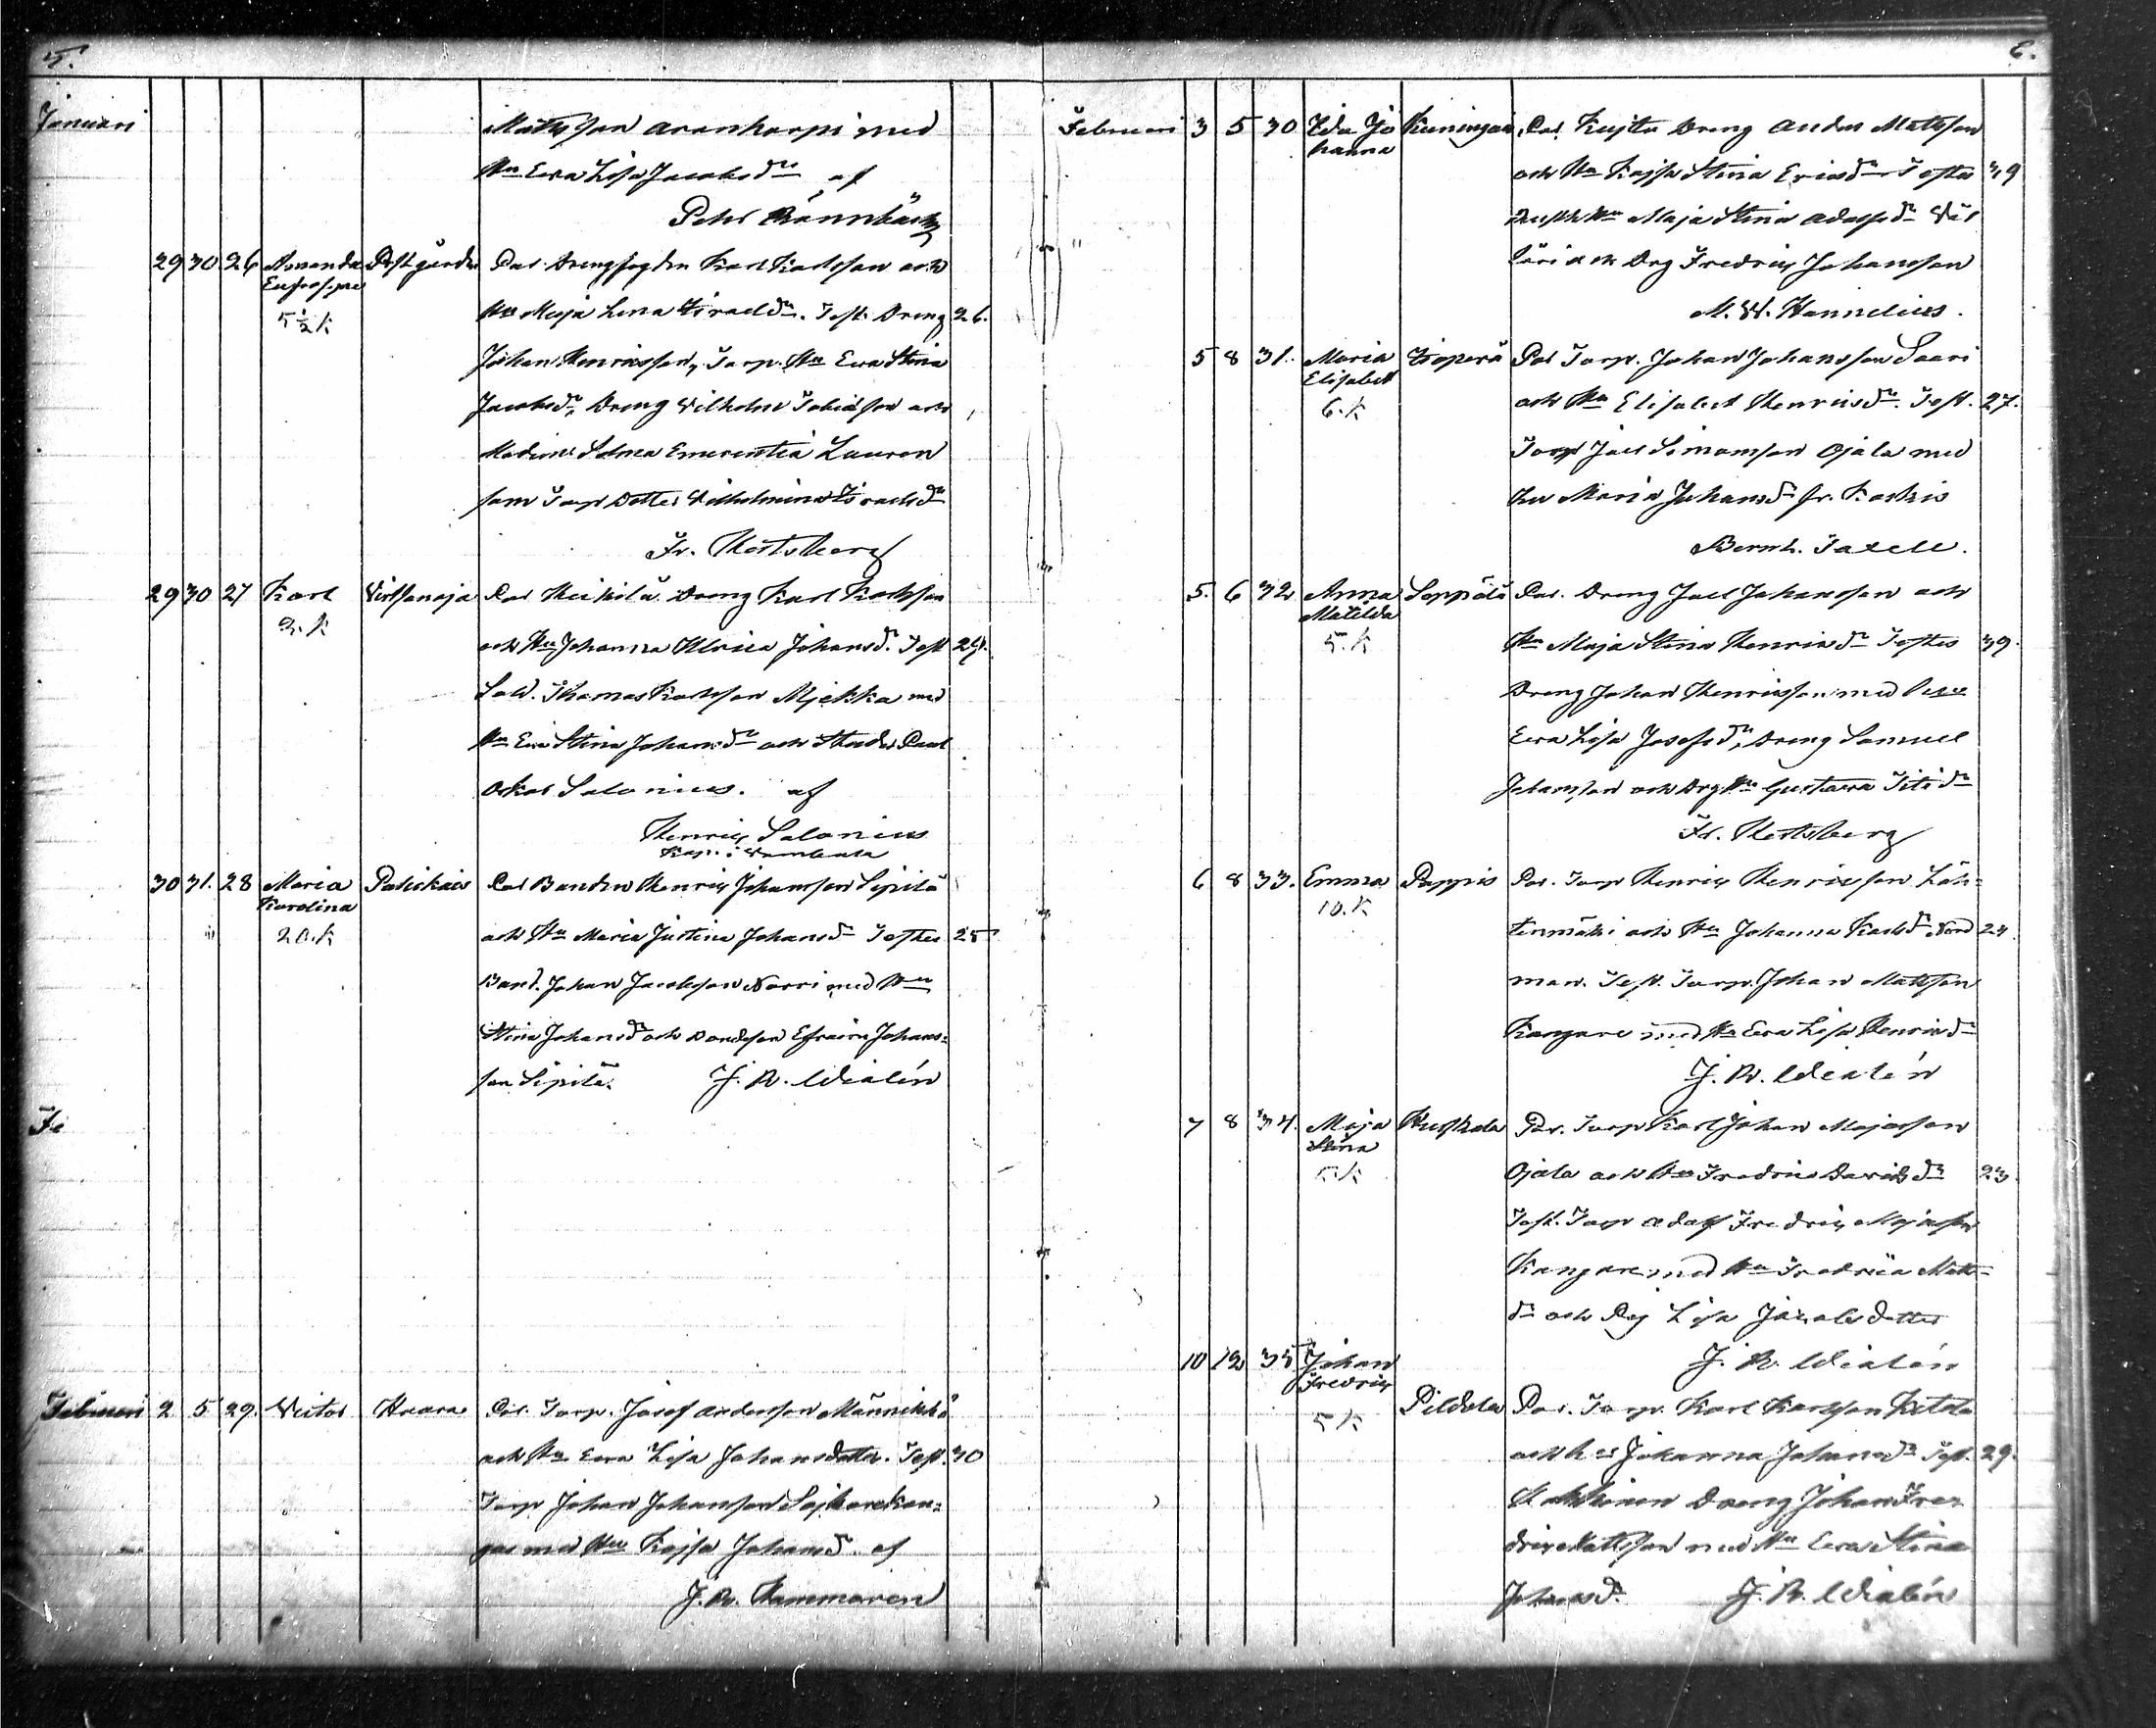 5.
Januari
Mattsson med
Hu Ewa Lisa Jacobsdr af
Petr Rönnbäck
29 30 26 Amanda Eufrosyne Postgården Par. Drengfogden Karl Karlsson och
5½ K Hu Maja Lena Israelsdr. Test. Dreng 26.
Johan Henriksson, Torp. Hu Ewa Stina
Jacobsdr, Dreng Vilhelm Tobiasson och
Madme Selma Emerentia Lauren
samt Torp Dotter Vilhelmina Israelsdr
Fr. Hertsberg
29 30 27 Karl Virtsanoja Par Heikilä Dreng Karl Karlsson
2. K och Hu Johanna Ulrica Johansdr. Test 29.
Sold. Thomas Karlsson med
Hu Ewa Stina Johansdr och Paul
Oskar Salonius. af
Henric Salonius
Kap. i
30 31. 28 Maria Karolina Palickais Par Bonden Henric Johansson Sipilä
20. K och Hu Maria Justina Johansdr Testes 25
Bond. Johan Jacobsson Norri med Hu
Stina Johansdr och Bondeson Efraim Johans=
son Sipilä. J. R. Widlén
Fe
Februari 2 5 29. Victor Haara Par. Torp. Josef Andersson Männikkö
och Hu Ewa Lisa Johansdotter. Test. 30
Torp Johan Johansson
med Hu Kajsa Johansd. af
J. R. Hammaren
6.
Februari 3 5 30 Ida Johanna Kuningas Par. Kujta Dreng Anders Mattsson
och Hu Kajsa Stina Ericsdr Testes 39
Hu Maja Stina Adolfsdr
och Drg Fredric Johansson
M. W. Hannelius.
5 8 31. Maria Elisabet Par Torp. Johan Johansson Saari
6. K och Hu Elisabet Henricsdr. Test. 27.
Torp Joel Simonsson Ojala med
Hu Maria Johansdr fr. Koskis
Bernh. Taxell.
5. 6 32 Anna Matilda Seppälä Par. Dreng Joel Johansson och
5. K Hu Maja Stina Henricsdr Testes 39.
Dreng Johan Henriksson med
Ewa Lisa Josefsdr, Dreng Samuel
Johansson och Drg Hu Gustava
Fr. Hertsberg
6 8 33. Emma Pappis Par. Torp Henric Henricsson Läh=
10. K tenmäki och Hu Johanna Karlsdr Nord 24.
man. Test. Torp. Johan Mattsson
Kangare med Hu Ewa Lisa Henricsdr
J. R. Widlén
7 8 34. Maja Stina Huskala Par. Torp Karl Johan Majasson
5. K Ojala och Hu Fredrica Davidsdr 23.
Test. Torp Adolf Fredric Majasson
Kangare med Hu Fredrica Matts=
dr och Pig Lisa Jacobsdotter
J. R. Widlén
10 12 35 Johan Fredric
5 K Pildola Par. Torp. Karl Karlsson Ketola
och hu Johanna Johansdr Test. 29.
Dreng Johan Fre
dric Mattsson med Hu Ewa Stina
Johansd. J. R. Widlén